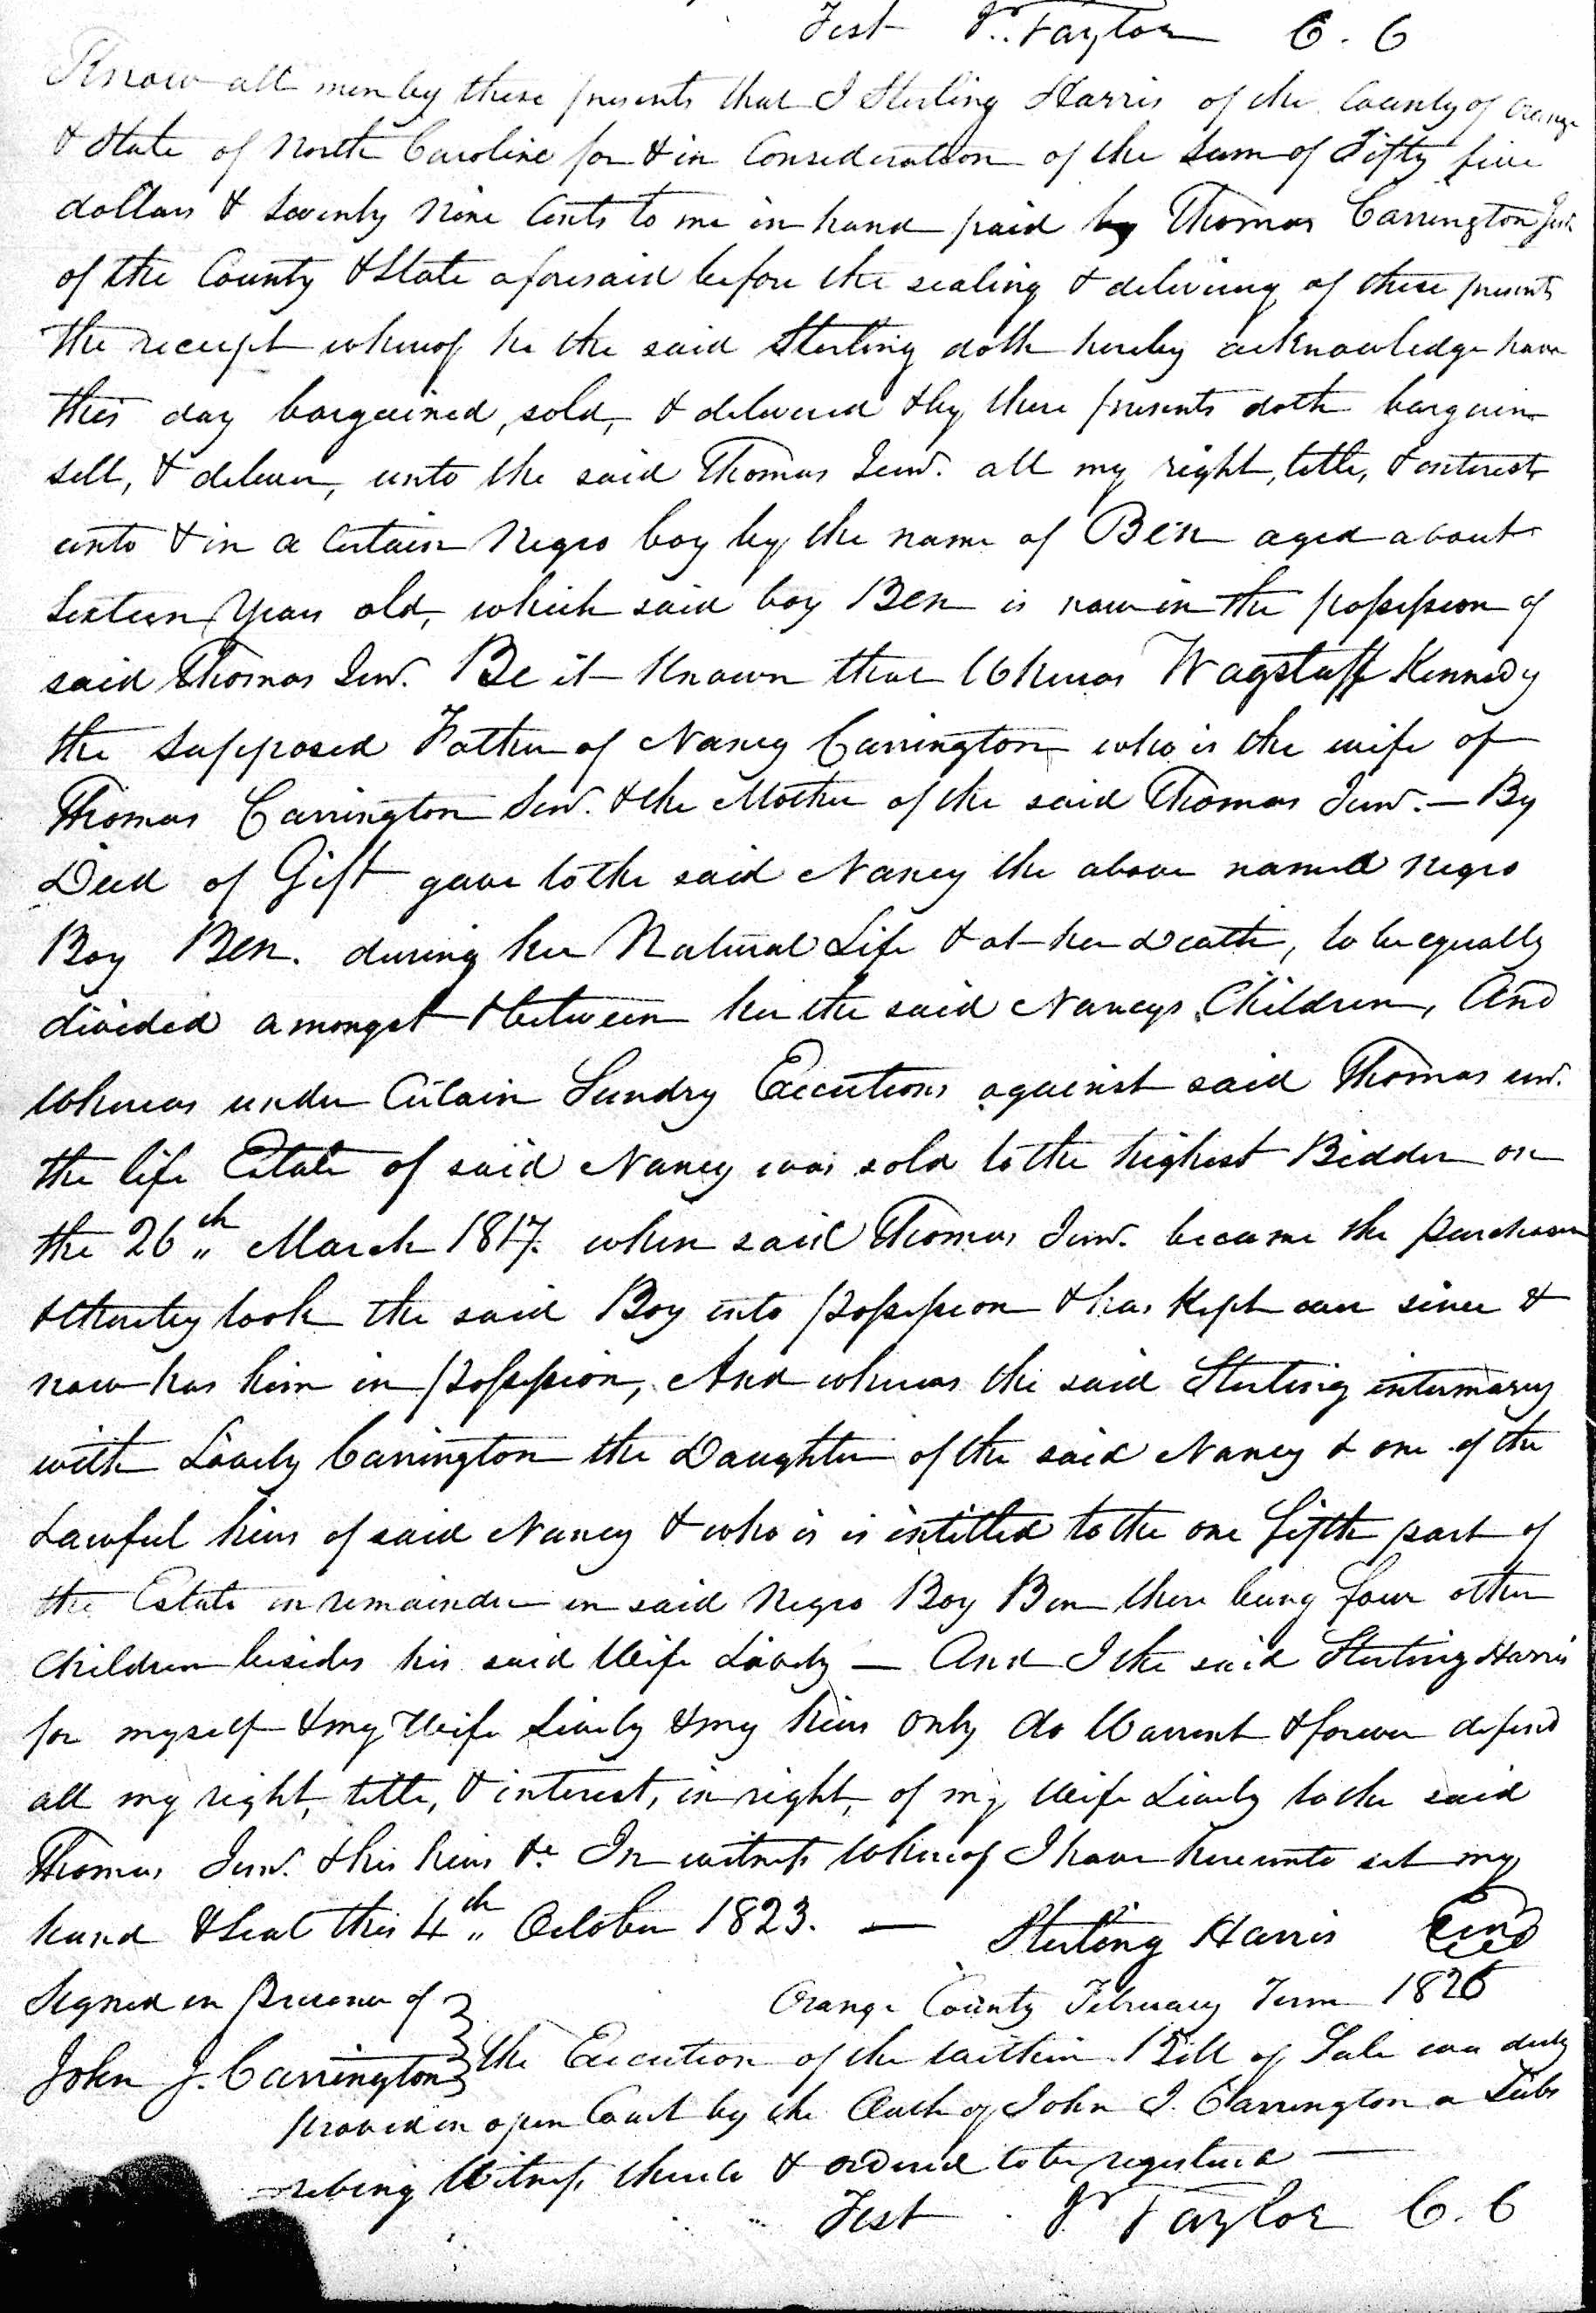 Test J. Taylor C. C
Know all men by these presents that I Sterling Harris of the County of Orange
& State of North Caroline for & in Consideration of the Sum of Fifty five
dollars & Seventy Nine Cents to me in hand paid by Thomas Carrington Junr.
of the County & State aforesaid before the sealing & delivering of these presents
the receipt whereof he the said Sterling doth hereby acknowledge have
this day bargained, sold, & delivered & by these presents doth bargain
sell, & deliver, unto the said Thomas Junr. all my right, title, & interest
unto & in a Certain Negro boy by the name of Ben aged about
Sixteen Years old, which said boy Ben is now in the possession of
said Thomas Junr. Be it Known that Whereas Wagstaff Kennedy
the Supposed Father of Nancy Carrington who is the wife of
Thomas Carrington Senr. & the Mother of the said Thomas Junr. — By
Deed of Gift gave to the said Nancy the above named Negro
Boy Ben. during her Natural Life & at her Death, to be equally
divided amongst & between her the said Nancys Children, And
Whereas under Certain Sundry Executions against said Thomas enr.
the life Estate of said Nancy was sold to the highest Bidder on
the 26th March 1817. when said Thomas Junr. became the purchaser
& thereby took the said Boy into possession & has Kept ever since &
now has him in possession, And whereas the said Sterling intermarry
with Lively Carrington the Daughter of the said Nancy & one of the
Lawful heirs of said Nancy & who is is intitled to the one fifth part of
the Estate in remainder in said Negro Boy Ben there being four other
Children besides his said Wife Lively — And I the said Sterling Harris
for myself & my Wife Lively & my heirs only do Warrent & forever defend
all my right, title, & interest, in right, of my Wife Lively to the said
Thomas Junr. & his heirs &c. In witness Whereof I have hereunto set my
hand & Seal this 4th October 1823. — Sterling Harris Seal
Signed in Presence of
John J. Carrington
Orange County February Term 1826
the Execution of the within Bill of Sale was duly
proved in open Court by the Oath of John J. Carrington a Subs
cribing Witness thereto & ordered to be registered —
Test J Taylor C. C